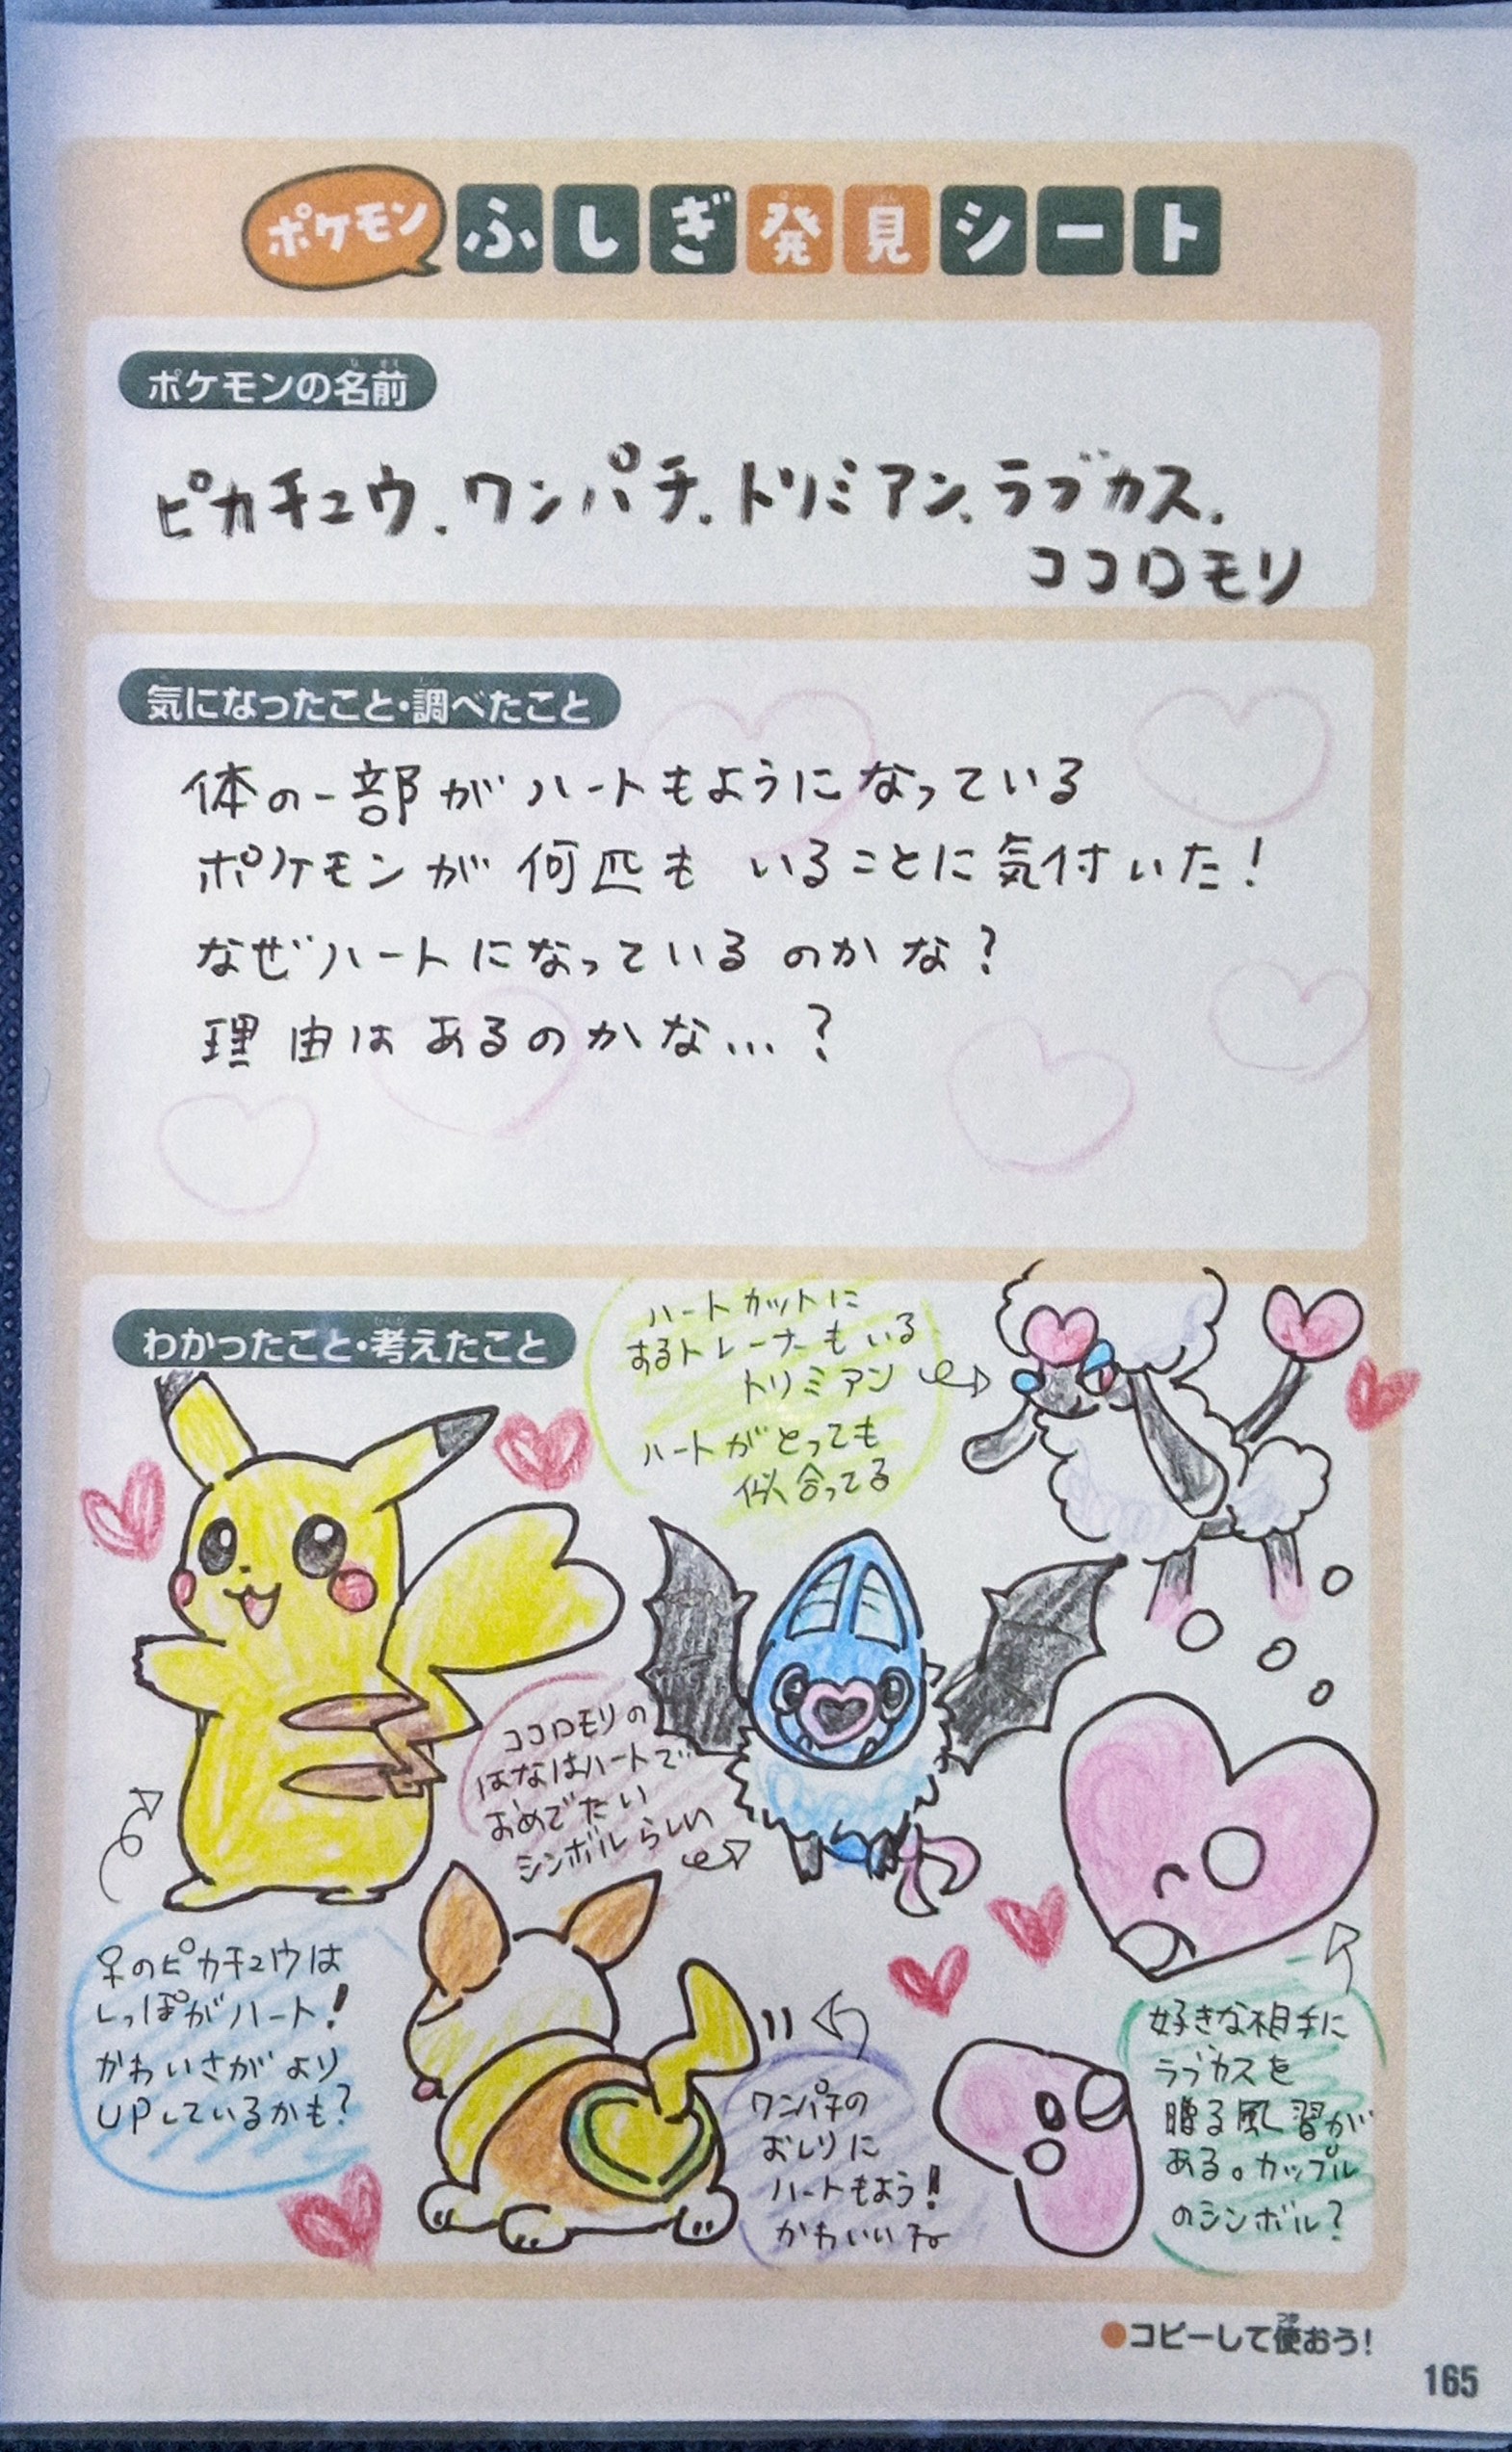 ポケモン ふしぎ発見シート
ポケモンの名前
ピカチュウ、ワンパチ、トリミアン、ラブカス、
ココロモリ
気になったこと・調べたこと
体の一部がハートもようになっている
ポケモンが何匹もいることに気付いた!
なぜハートになっているのかな?
理由はあるのかな…?
わかったこと・考えたこと
ハートカットに
するトレーナーもいる
トリミアン
ハートがとっても
似合ってる
ココロモリの
はなはハートで
おめでたい
シンボルらしい
♀のピカチュウは
しっぽがハート!
かわいさがより
UPしているかも?
ワンパチの
おしりに
ハートもよう!
かわいいね
好きな相手に
ラブカスを
贈る風習が
ある。カップル
のシンボル?
●コピーして使おう!
165